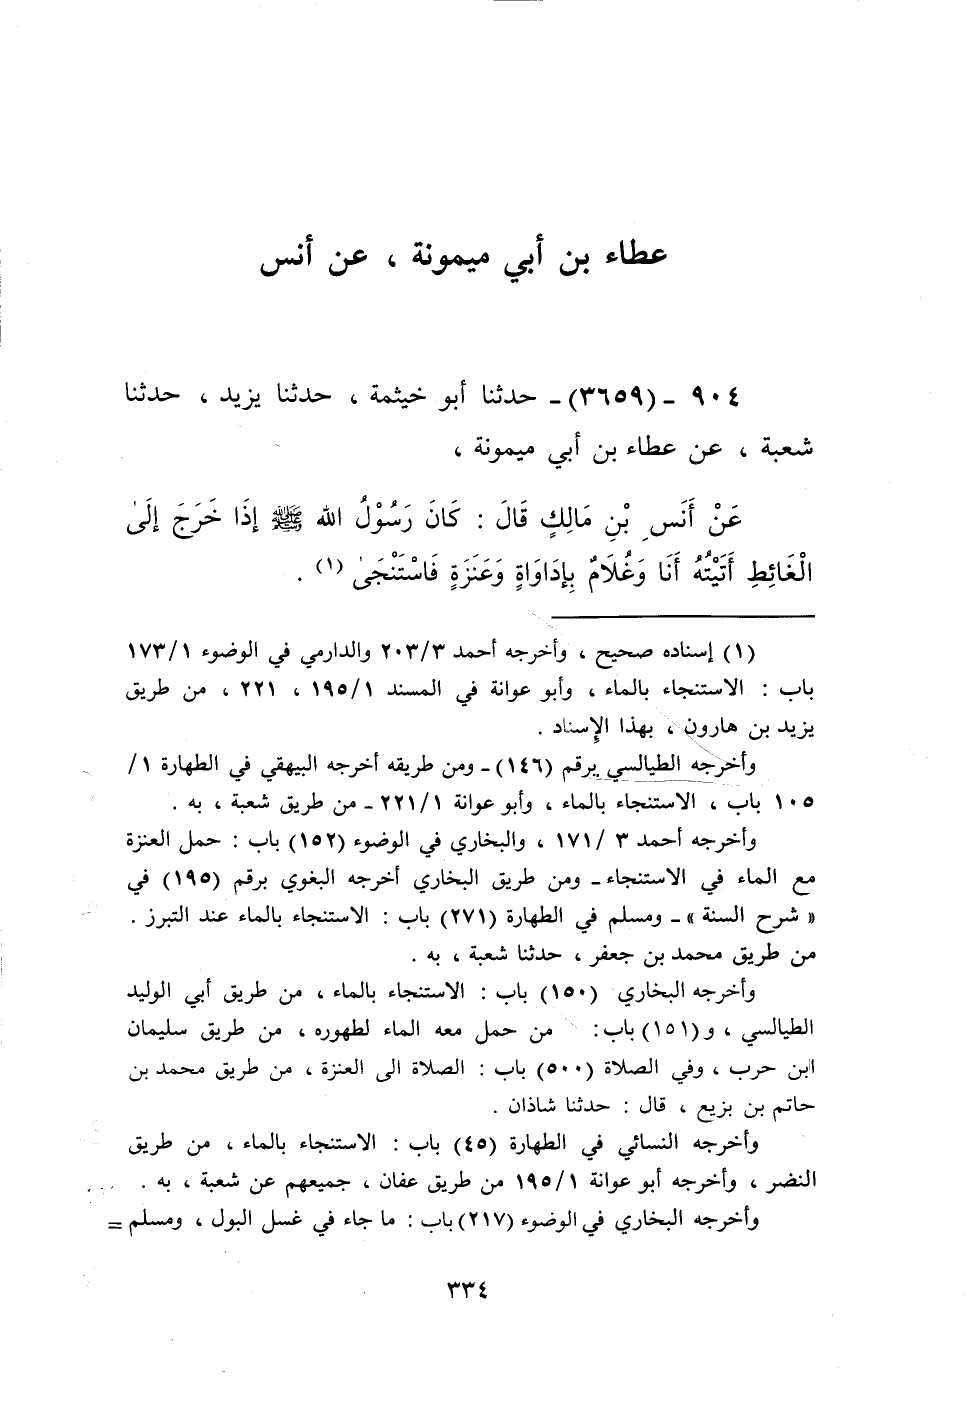 عطاء بن أبي ميمونة ، عن أنس
٩٠٤ ـ (٣٦٥٩) ـ حدثنا أبو خيثمة ، حدثنا يزيد ، حدثنا
شعبة ، عن عطاء بن أبي ميمونة ،
عَنْ أَنَسِ بْنِ مَالِكٍ قَالَ : كَانَ رَسُوْلُ الله ﷺ إِذَا خَرَجَ إِلَىٰ
الْغَائِطِ أَتَيْتُهُ أَنَا وَغُلَامٌ بِإِدَاوَاةٍ وَعَنَزَةٍ فَاسْتَنْجَىٰ (١) .
(١) إسناده صحيح ، وأخرجه أحمد ٢٠٣/٣ والدارمي في الوضوء ١٧٣/١
باب : الاستنجاء بالماء ، وأبو عوانة في المسند ١٩٥/١ ، ٢٢١ ، من طريق
يزيد بن هارون ، بهذا الإسناد .
وأخرجه الطيالسي برقم (١٤٦) ـ ومن طريقه أخرجه البيهقي في الطهارة ١/
١٠٥ باب ، الاستنجاء بالماء ، وأبو عوانة ٢٢١/١ ـ من طريق شعبة ، به .
وأخرجه أحمد ٣ /١٧١ ، والبخاري في الوضوء (١٥٢) باب : حمل العنزة
مع الماء في الاستنجاء ـ ومن طريق البخاري أخرجه البغوي برقم (١٩٥) في
« شرح السنة » ـ ومسلم في الطهارة (٢٧١) باب : الاستنجاء بالماء عند التبرز .
من طريق محمد بن جعفر ، حدثنا شعبة ، به .
وأخرجه البخاري (١٥٠) باب : الاستنجاء بالماء ، من طريق أبي الوليد
الطيالسي ، و(١٥١) باب: من حمل معه الماء لطهوره ، من طريق سليمان
ابن حرب ، وفي الصلاة (٥٠٠) باب : الصلاة الى العنزة ، من طريق محمد بن
حاتم بن بزيع ، قال : حدثنا شاذان .
وأخرجه النسائي في الطهارة (٤٥) باب : الاستنجاء بالماء ، من طريق
النضر ، وأخرجه أبو عوانة ١٩٥/١ من طريق عفان ، جميعهم عن شعبة ، به .
وأخرجه البخاري في الوضوء (٢١٧) باب : ما جاء في غسل البول ، ومسلم =
٣٣٤